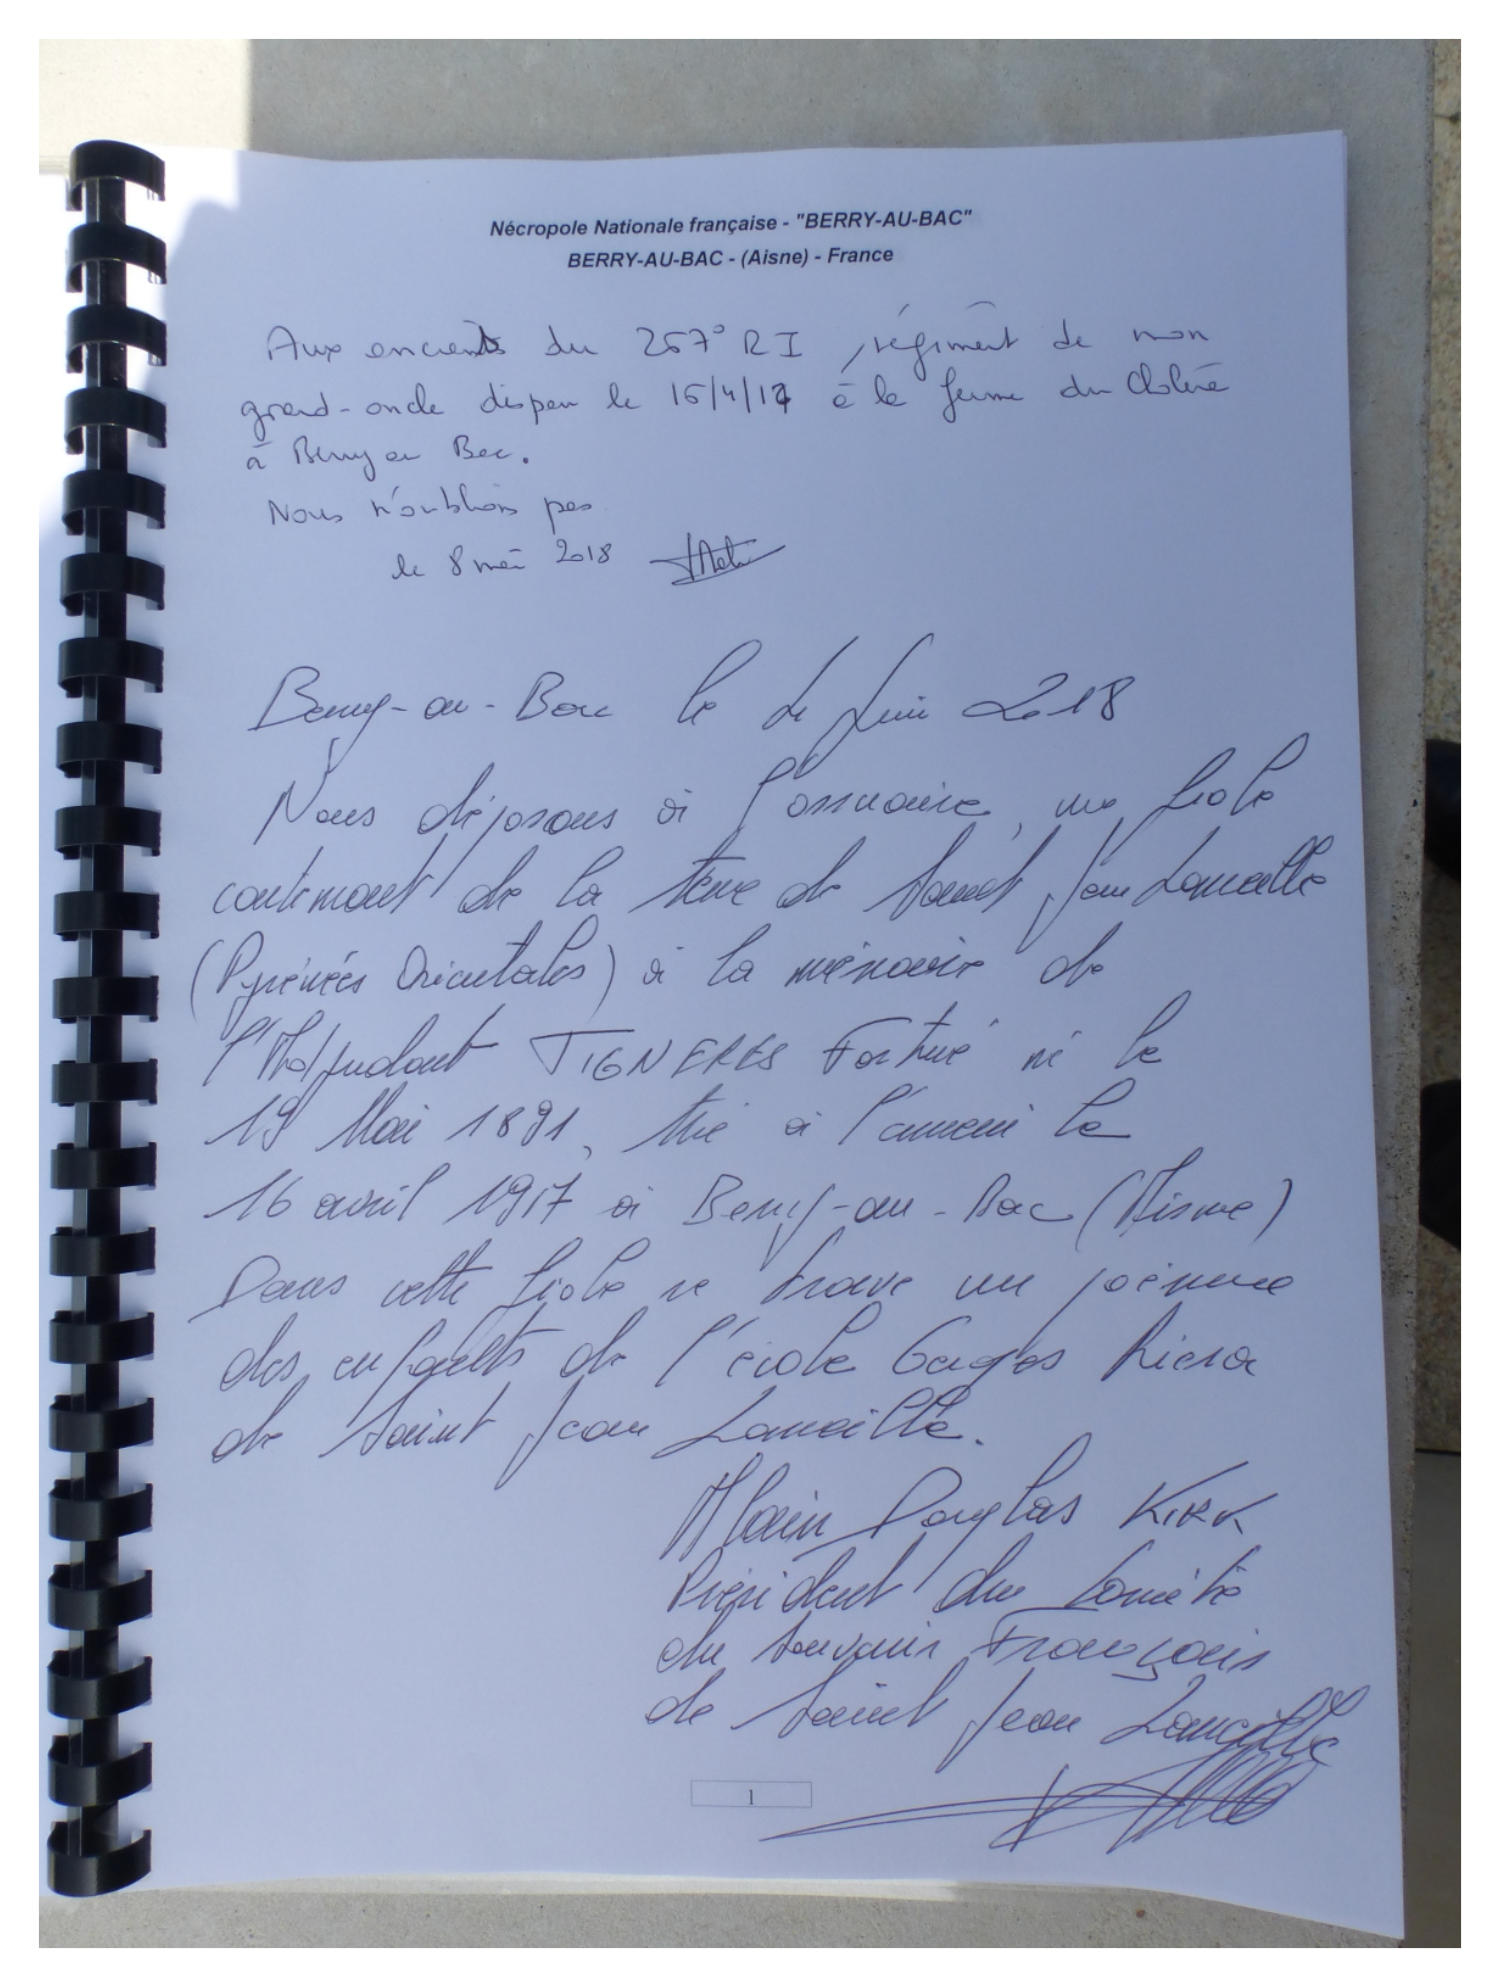 Nécropole Nationale française - "BERRY-AU-BAC"
BERRY-AU-BAC - (Aisne) - France
Aux anciens du 267° RI, régiment de mon
grand-oncle disparu le 16/4/17 à la ferme du Choléra
à Berry au Bac.
Nous n'oublions pas
le 8 mai 2018
Berry-au-Bac le Juin 2018
Nous déposons à l'ossuaire, une fiole
contenant de la terre de Saint Jean Lasseille
(Pyrénées Orientales) à la mémoire de
l'Adjudant TIGNERES Fortuné né le
19 Mai 1891, tué à l'ennemi le
16 avril 1917 à Berry-au-Bac (Aisne)
Dans cette fiole se trouve un poème
des enfants de l'école Riera
de Saint Jean Lasseille.
Alain Douglas KIRK
Président du Comité
du Souvenir Français
de Saint Jean Lasseille
1